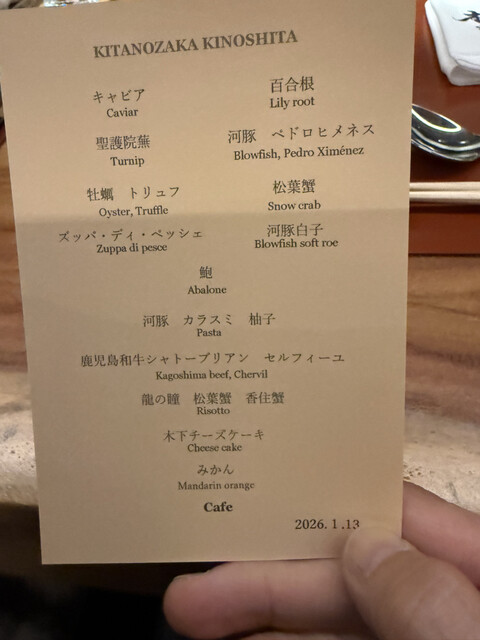 KITANOZAKA KINOSHITA
キャビア
Caviar
百合根
Lily root
聖護院蕪
Turnip
河豚　ペドロヒメネス
Blowfish, Pedro Ximénez
牡蠣　トリュフ
Oyster, Truffle
松葉蟹
Snow crab
ズッパ・ディ・ペッシェ
Zuppa di pesce
河豚白子
Blowfish soft roe
鮑
Abalone
河豚　カラスミ　柚子
Pasta
鹿児島和牛シャトーブリアン　セルフィーユ
Kagoshima beef, Chervil
龍の瞳　松葉蟹　香住蟹
Risotto
木下チーズケーキ
Cheese cake
みかん
Mandarin orange
Cafe
2026. 1 .13